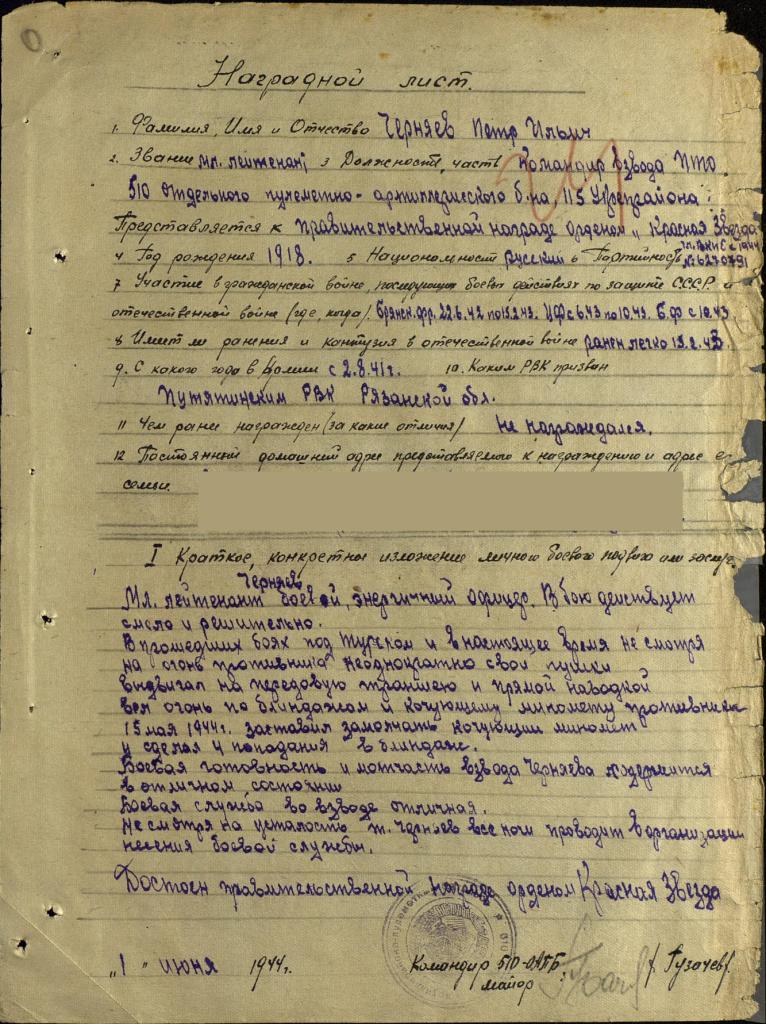 Наградной лист.
1. Фамилия, Имя и Отчество Черняев Петр Ильич
2. Звание мл. лейтенант 3 Должность, часть Командир взвода ПТО
510 отдельного пулеметно-артиллерийского б-на, 115 Укрепрайона.
Представляется к правительственной награде орденом „Красная Звезда
4 Год рождения 1918. 5 Национальность русский 6 Партийность чл. ВКПБ с 1944
№ 6270791
7 Участие в гражданской войне, последующих боевых действиях по защите СССР и
отечественной войне (где, когда). Брянск. фр. 22.6.42 по 15.2.43. ЦФ с 6.43 по 10.43. Б.Ф с 10.43.
8 Имеет ли ранения и контузия в отечественной войне ранен легко 13.2.43.
9. С какого года в Армии с 2.8.41г. 10. Каким РВК призван
Путятинским РВК Рязанской обл.
11 Чем ранее награжден (за какие отличия) Не награждался.
12 Постоянный домашний адрес представляемого к награждению и адрес е-
семьи.
I Краткое, конкретное изложение личного боевого подвига или заслуг.
Мл. лейтенант Черняев боевой, энергичный офицер. В бою действует
смело и решительно.
В прошедших боях под Турском и в настоящее время не смотря
на огонь противника неоднократно свои пушки
выдвигал на передовую траншею и прямой наводкой
вел огонь по блиндажом и кочующему миномету противника
15 мая 1944г. заставил замолчать кочующий миномет
и сделал 4 попадания в блиндаж.
Боевая готовность и матчасть взвода Черняева содержится
в отличном состоянии
Боевая служба во взводе отличная.
Не смотря на усталость т. Черняев все ночи проводит в организации
несения боевой службы.
Достоен правительственной награде орденом Красная Звезда
„1" июня 1944г. Командир 510-ОПАБ
майор: /Гузачев/